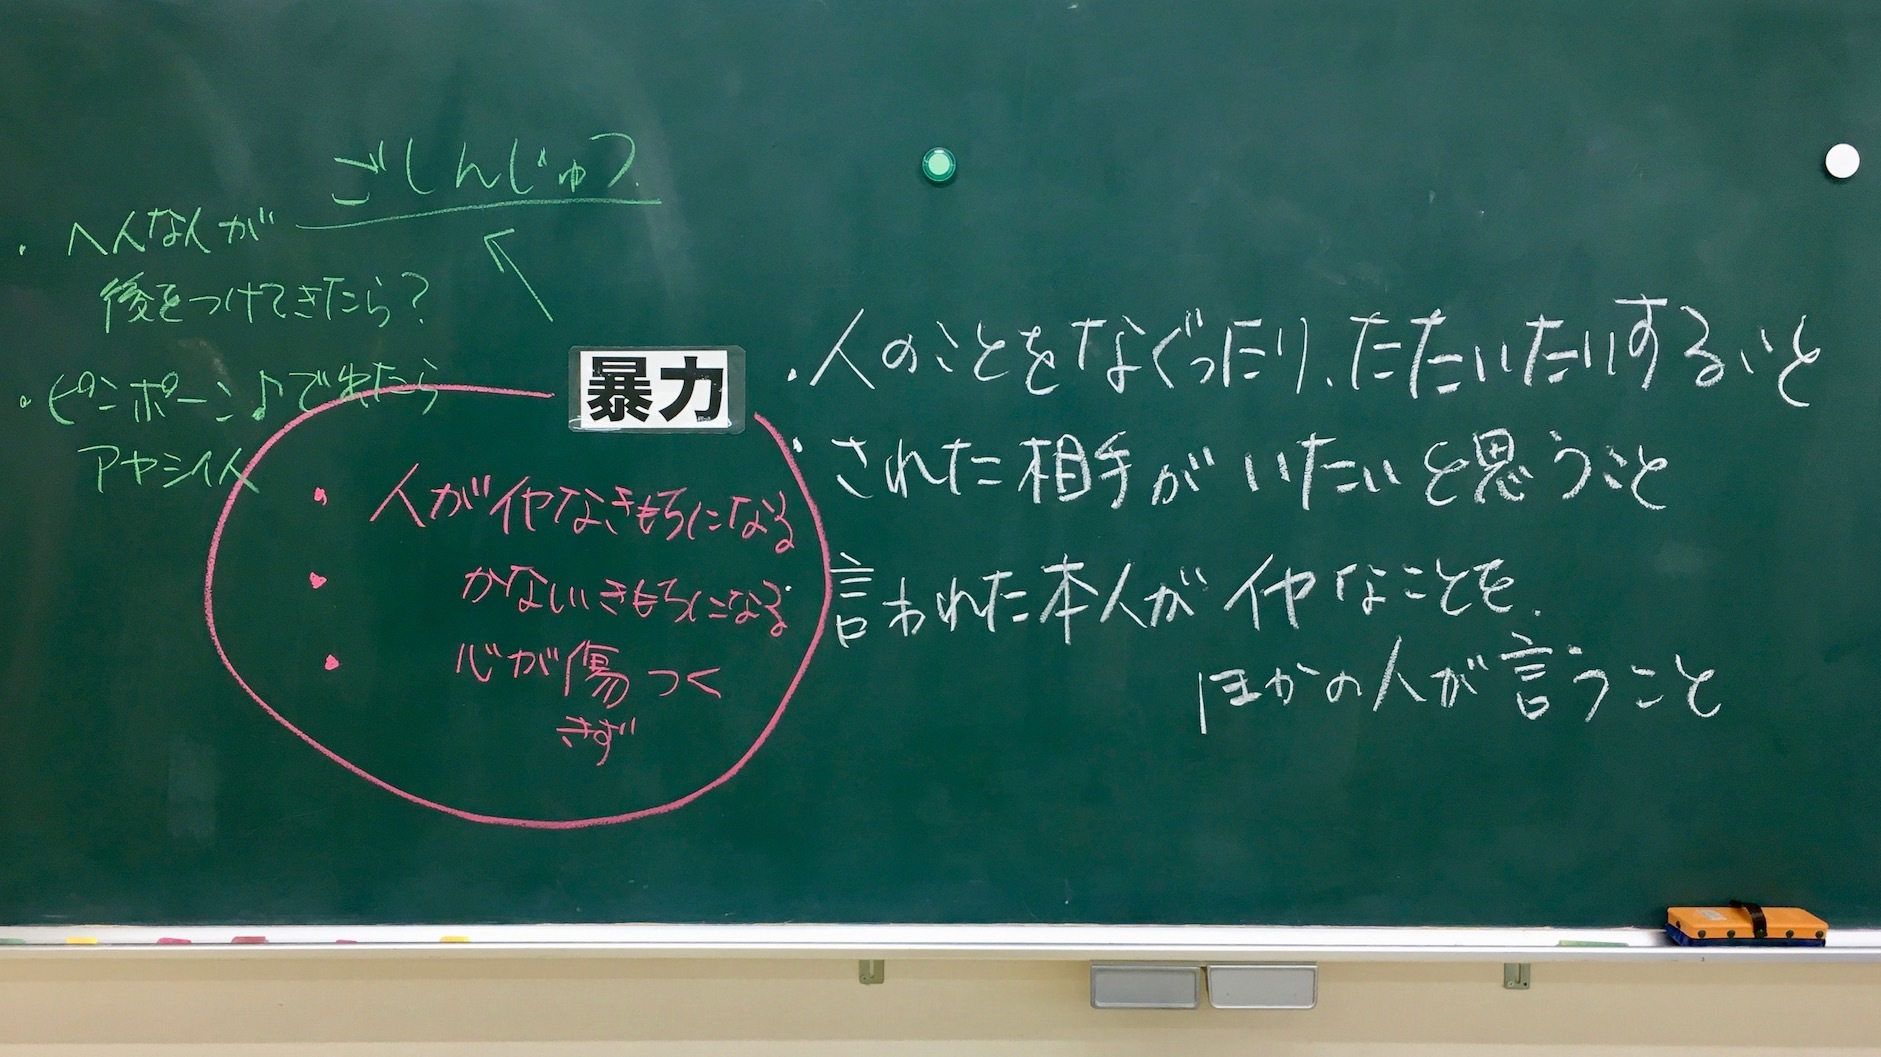 ごしんじゅつ
・へんな人が
後をつけてきたら?
・ピンポーン♪で出たら
アヤシイ人
暴力
・人がイヤなきもちになる
・かなしいきもちになる
・心が傷つく
きず
・人のことをなぐったり、たたいたりすること
・された相手がいたいと思うこと
・言われた本人がイヤなことを、
ほかの人が言うこと